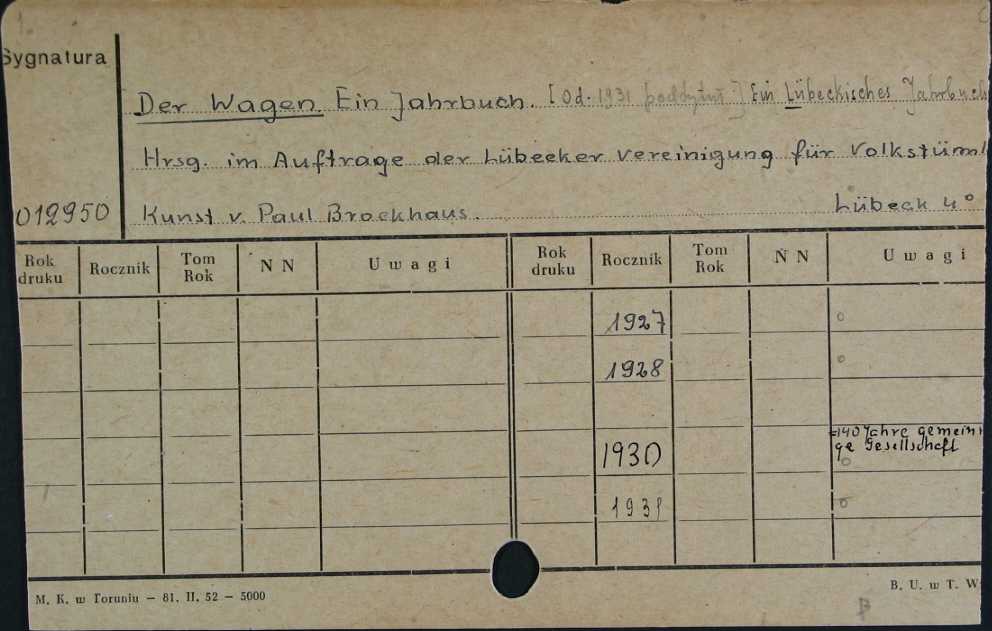 Sygnatura
Der Wagen Ein Jahrbuch. [Od. 1931 podtytuł] Ein Lübeckisches Jahrbuch
Hrsg. im Auftrage der Lübecker Vereinigung für Volkstüml
012950 Kunst v. Paul Brockhaus. Lübeck 4°
Rok druku Rocznik Tom Rok N N Uwagi Rok druku Rocznik Tom Rok N N Uwagi
1927 o
1928 o
=140 Jahre gemeinü
1930 ge Gesellschaft
o
1931 o
M. K. w Toruniu — 81. II. 52 — 5000 B. U. w T. W